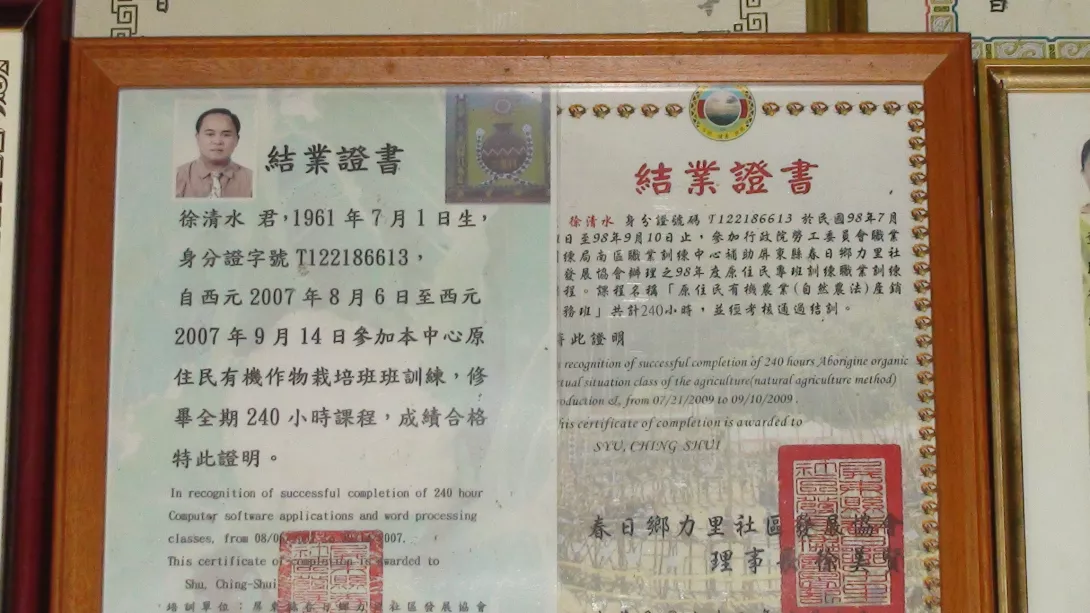 結業證書
徐清水 君，1961年7月1日生，
身分證字號T122186613，
自西元2007年8月6日至西元
2007年9月14日參加本中心原
住民有機作物栽培班班訓練，修
畢全期240小時課程，成績合格
特此證明。
In recognition of successful completion of 240 hour
Computer software applications and word processing
classes, from 2007.
This certificate of completion is awarded to
Shu, Ching-Shui
培訓單位：屏東縣春日鄉力里社區發展協會
結業證書
徐清水 身分證號碼T122186613 於民國98年7月
日至98年9月10日止，參加行政院勞工委員會職業
練局南區職業訓練中心補助屏東縣春日鄉力里社
發展協會辦理之98年度原住民專班訓練職業訓練
程。課程名稱「原住民有機農業(自然農法)產銷
務班」共計240小時，並經考核通過結訓。
此證明
recognition of successful completion of 240 hours Aborigine organic
tual situation class of the agriculture(natural agriculture method)
oduction &, from 07/21/2009 to 09/10/2009 .
his certificate of completion is awarded to
SYU, CHING SHUI
春日鄉力里社區發展協會
理事長 徐美賢